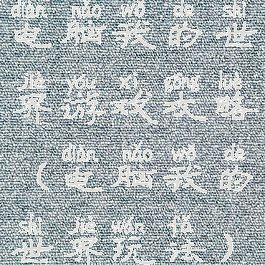 diàn nǎo wǒ de shì
电脑我的世
jiè yóu xì gōng lüè
界游戏攻略
diàn nǎo wǒ de
（电脑我的
shì jiè wán fǎ
世界玩法）